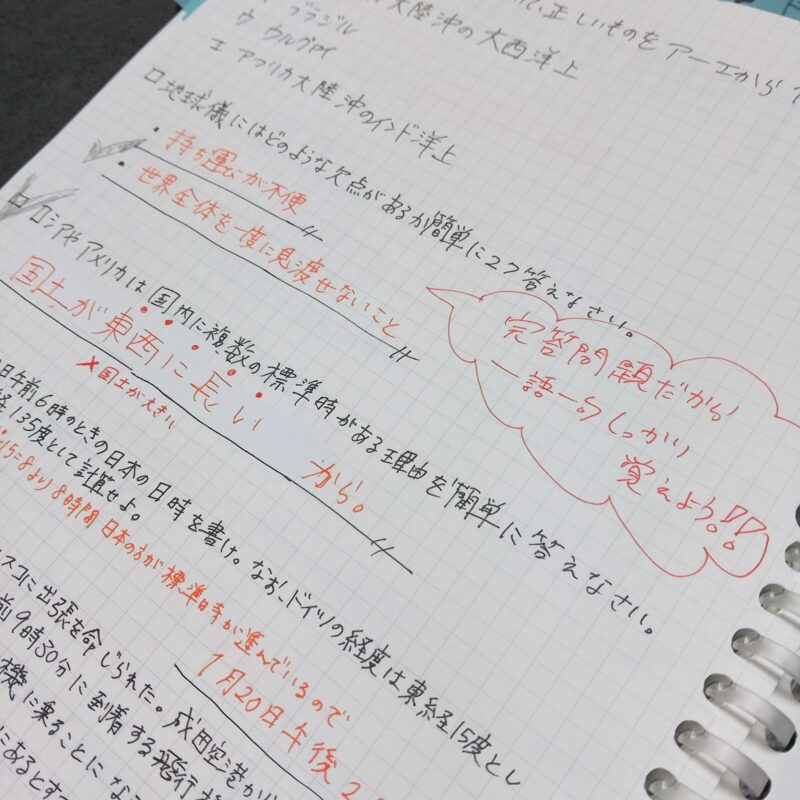 正しいものをアーエから
ブラジル
大陸沖の大西洋上
ウ ウルグアイ
エ アフリカ大陸沖のインド洋上
□地球儀にはどのような欠点があるか簡単に2つ答えなさい。
・持ち運びが不便
・世界全体を一度に見渡せないこと
完答問題だから!
一語一句しっかり
覚えよう!!
□ロシアやアメリカは国内に複数の標準時がある理由を簡単に答えなさい。
国土が東西に長い から。
×国土が大きい
日午前6時のときの日本の日時を書け。なお、ドイツの経度は東経15度とし
経135度として計算せよ。
15=8より8時間日本の方が標準時が進んでいるので
1月20日午後2
スコに出張を命じられた。成田空港か
前9時30分に到着する飛行
機に乗ることにな
にあるとす